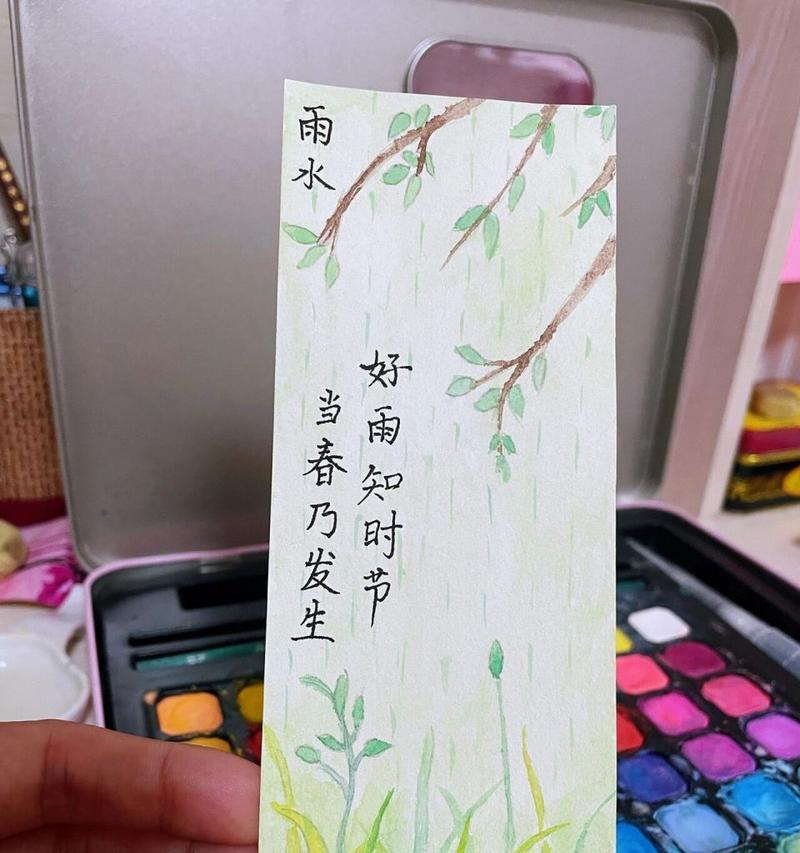 雨水
好雨知时节
当春乃发生